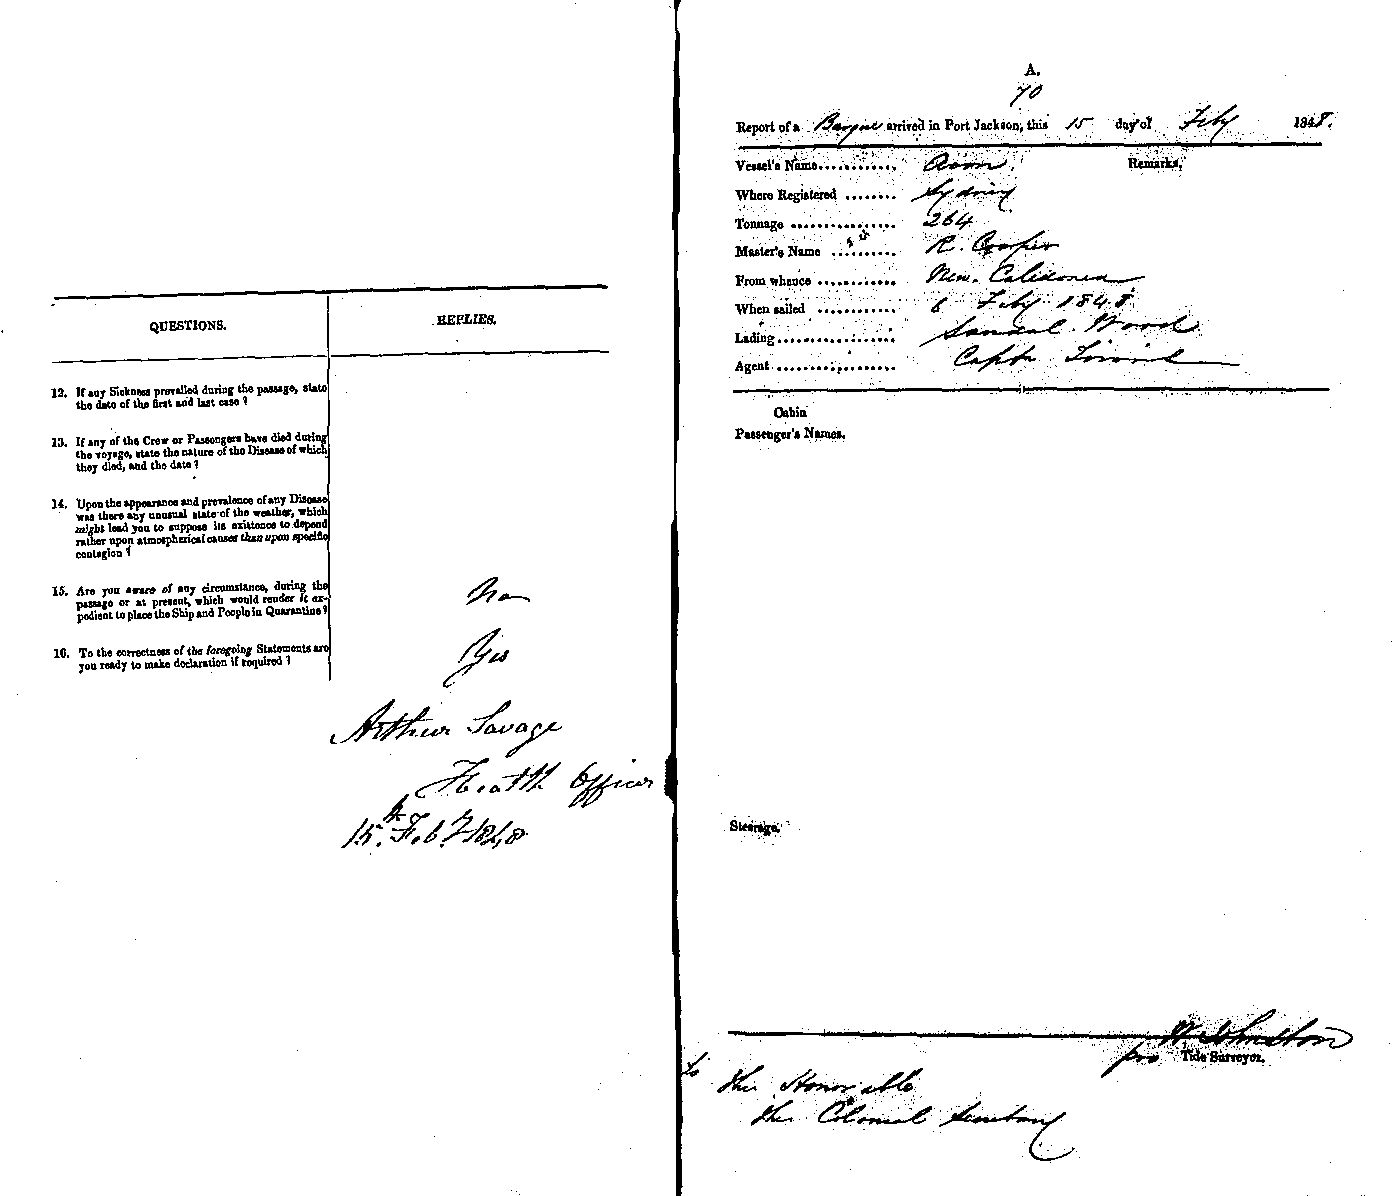 QUESTIONS.
REPLIES.
12. If any Sickness prevailed during the passage, state
the date of the first and last case ?
13. If any of the Crew or Passengers have died during
the voyage, state the nature of the Disease of which
they died, and the date ?
14. Upon the appearance and prevalence of any Disease
was there any unusual state of the weather, which
might lead you to suppose its existence to depend
rather upon atmospherical causes than upon specific
contagion ?
15. Are you aware of any circumstance, during the
passage or at present, which would render it ex-
pedient to place the Ship and People in Quarantine ?
No
16. To the correctness of the foregoing Statements are
you ready to make declaration if required ?
Yes
Arthur Savage
Health Officer
15th Feby 1848
A.
70
Report of a Barque arrived in Port Jackson, this 15 day of Feby 1848.
Vessel's Name............ Avon. Remarks.
Where Registered ........ Sydney
Tonnage ................ 264
Master's Name .......... R. Cooper
From whence ............ New. Caledonea
When sailed ............ 6 Feby 1848
Lading.................. Sandal. Wood
Agent .................. Captn
Cabin
Passenger's Names.
Steerage.
W. Johnston
pro Tide Surveyor.
To
The Honorable
the Colonial Secretary